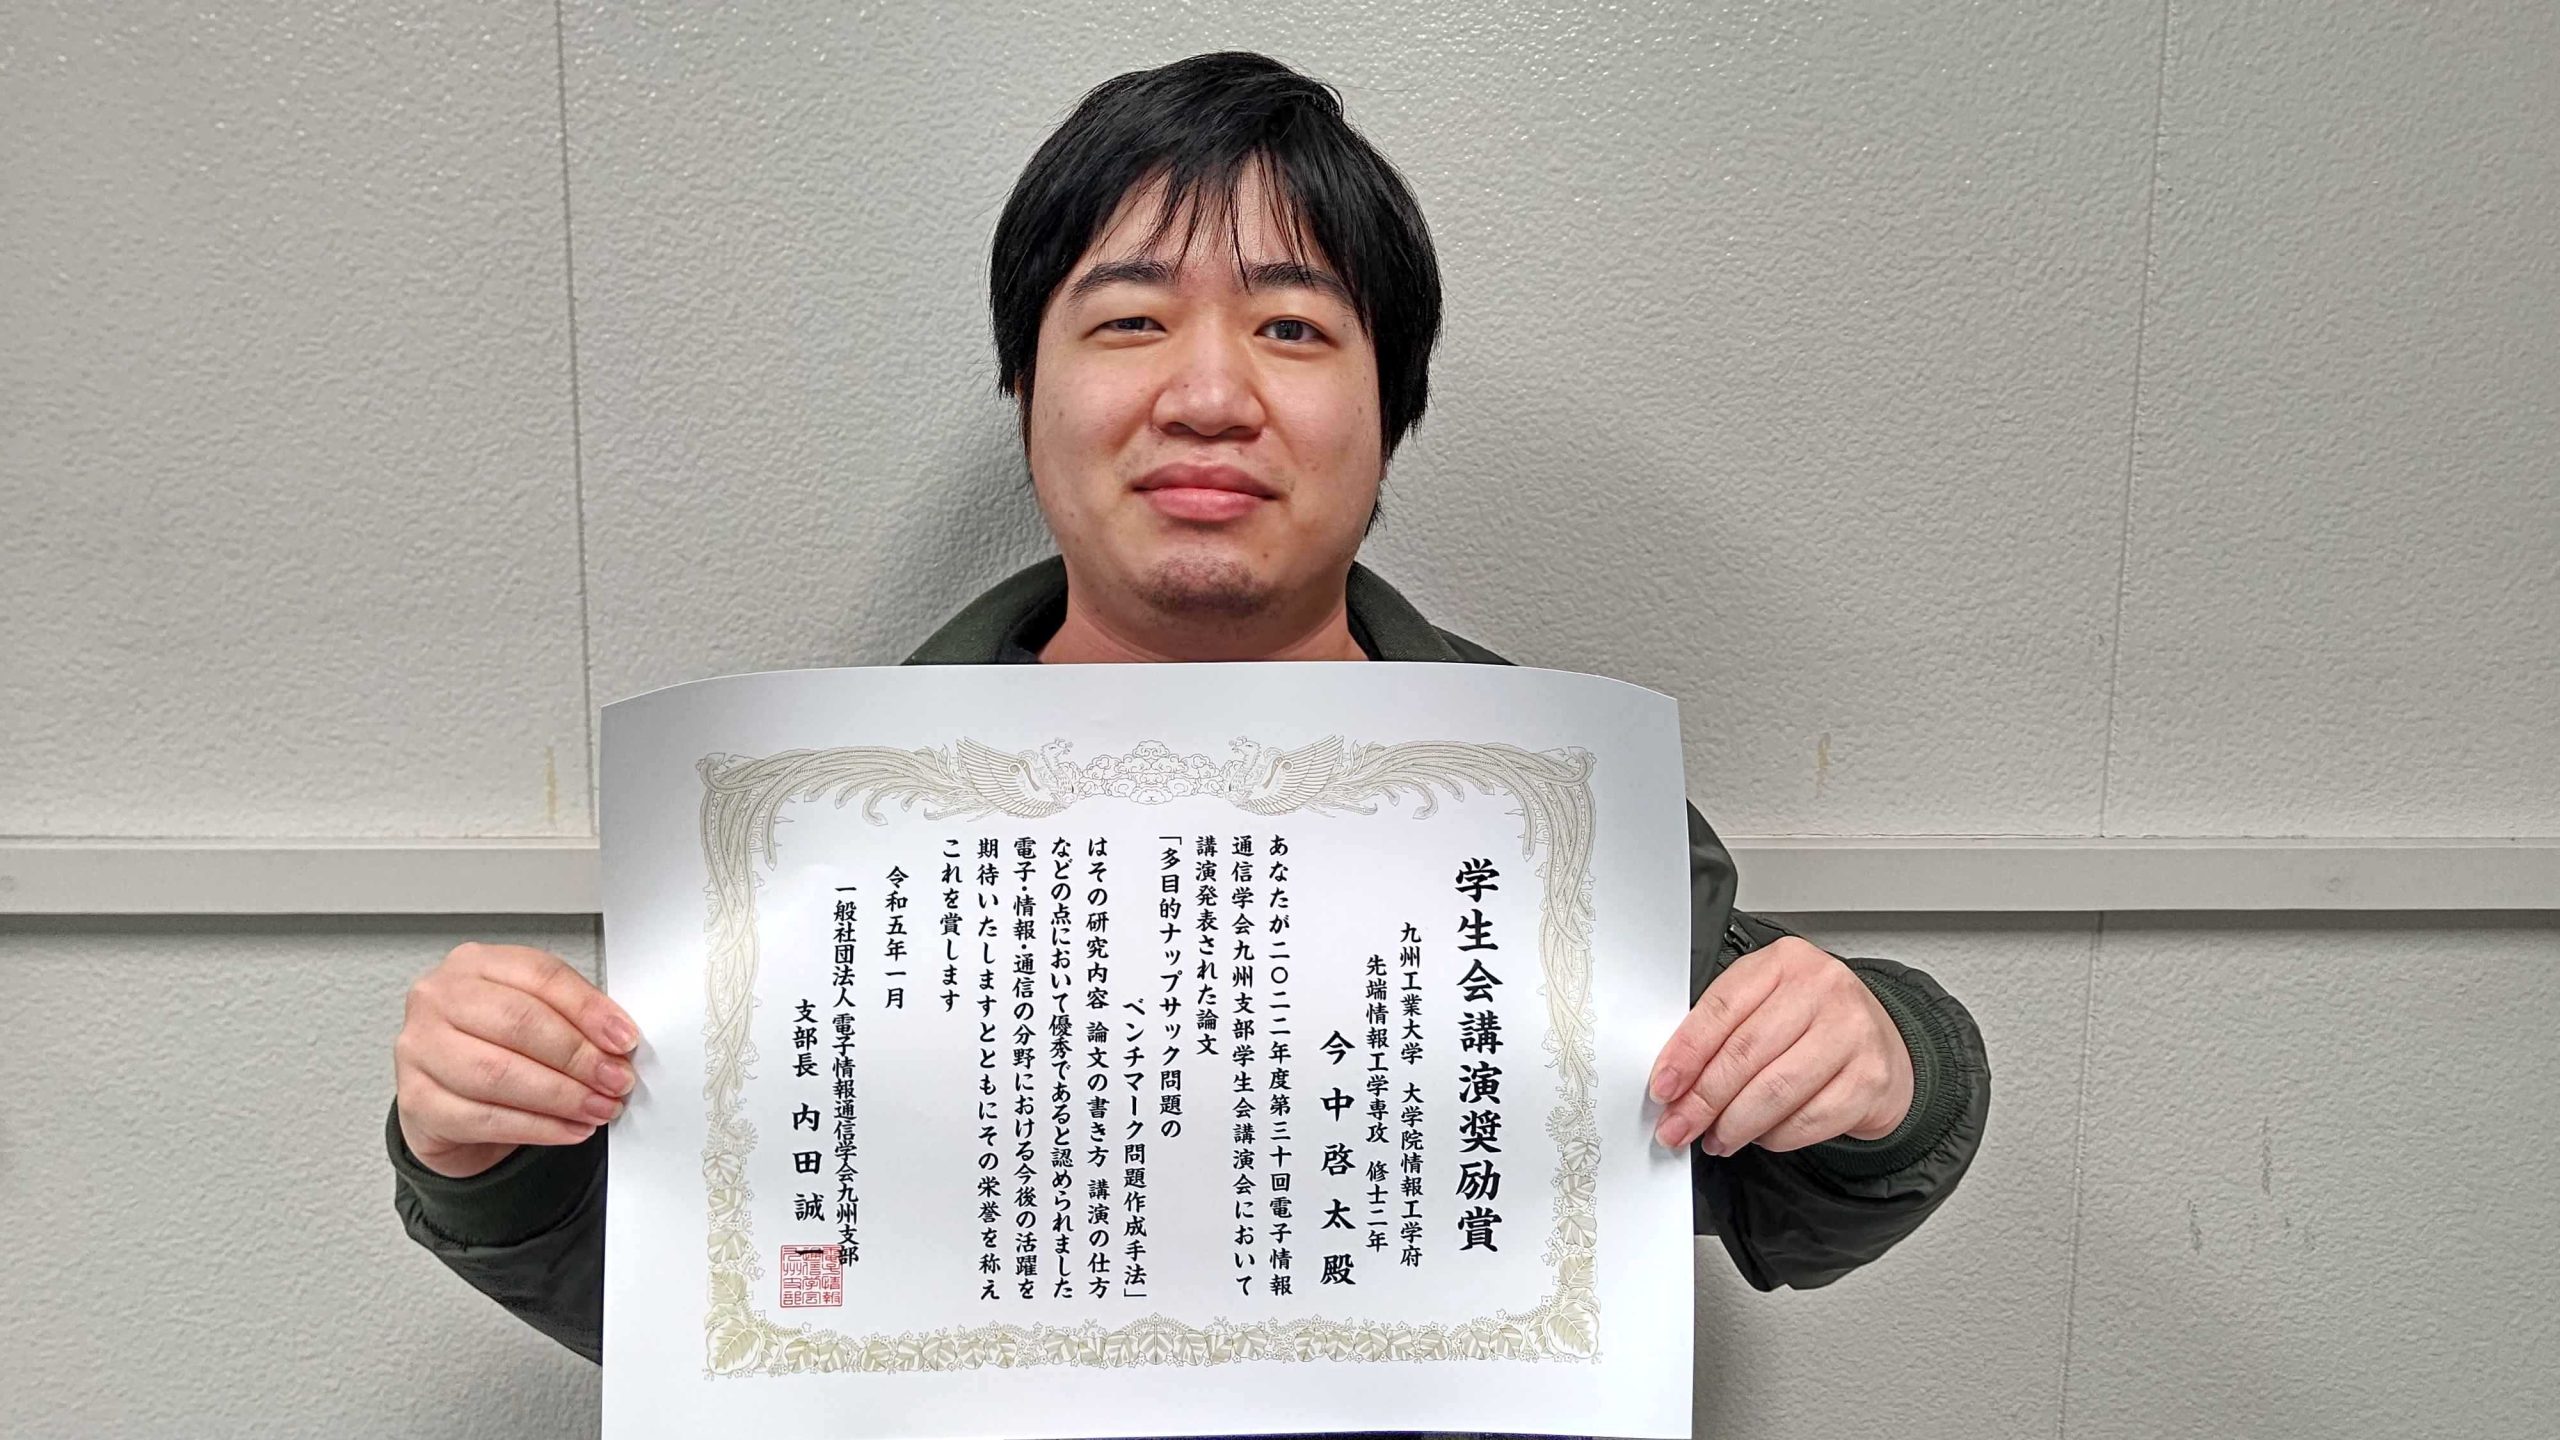 学生会講演奨励賞
九州工業大学 大学院情報工学府
先端情報工学専攻 修士二年
今中啓太 殿
あなたが二〇二二年度第三十回電子情報
通信学会九州支部学生会講演会において
講演発表された論文
「多目的ナップサック問題の
ベンチマーク問題作成手法」
はその研究内容 論文の書き方 講演の仕方
などの点において優秀であると認められました
電子・情報・通信の分野における今後の活躍を
期待いたしますとともにその栄誉を称え
これを賞します
令和五年一月
一般社団法人 電子情報通信学会九州支部
支部長 内田誠一
電子情報
通信学会
九州支部